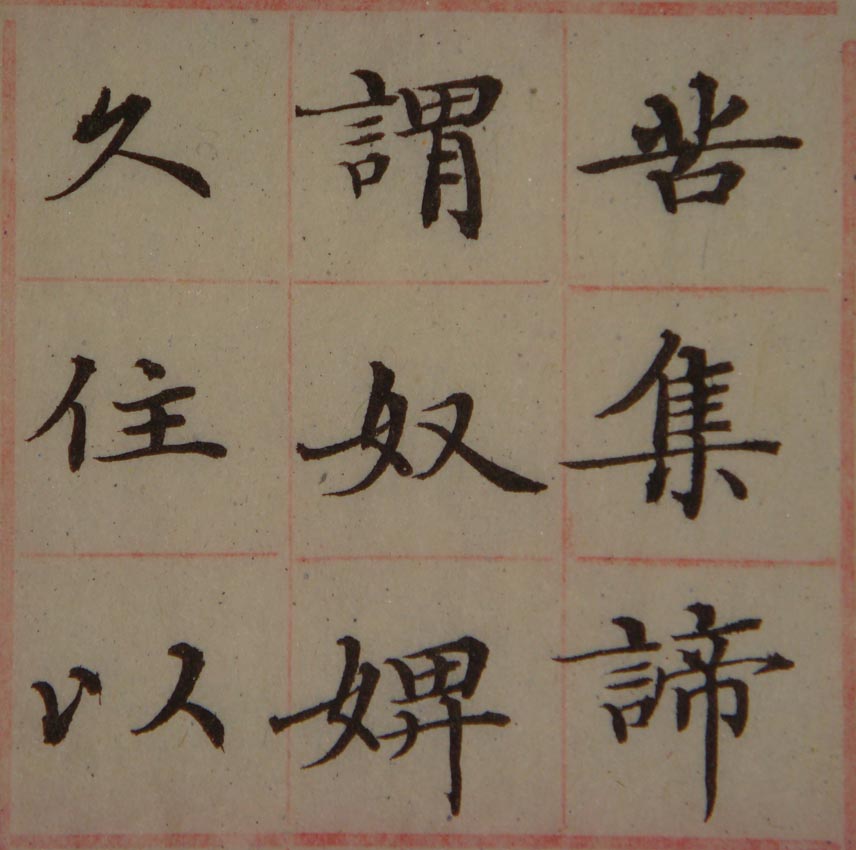 苦集諦
謂奴婢
久住以